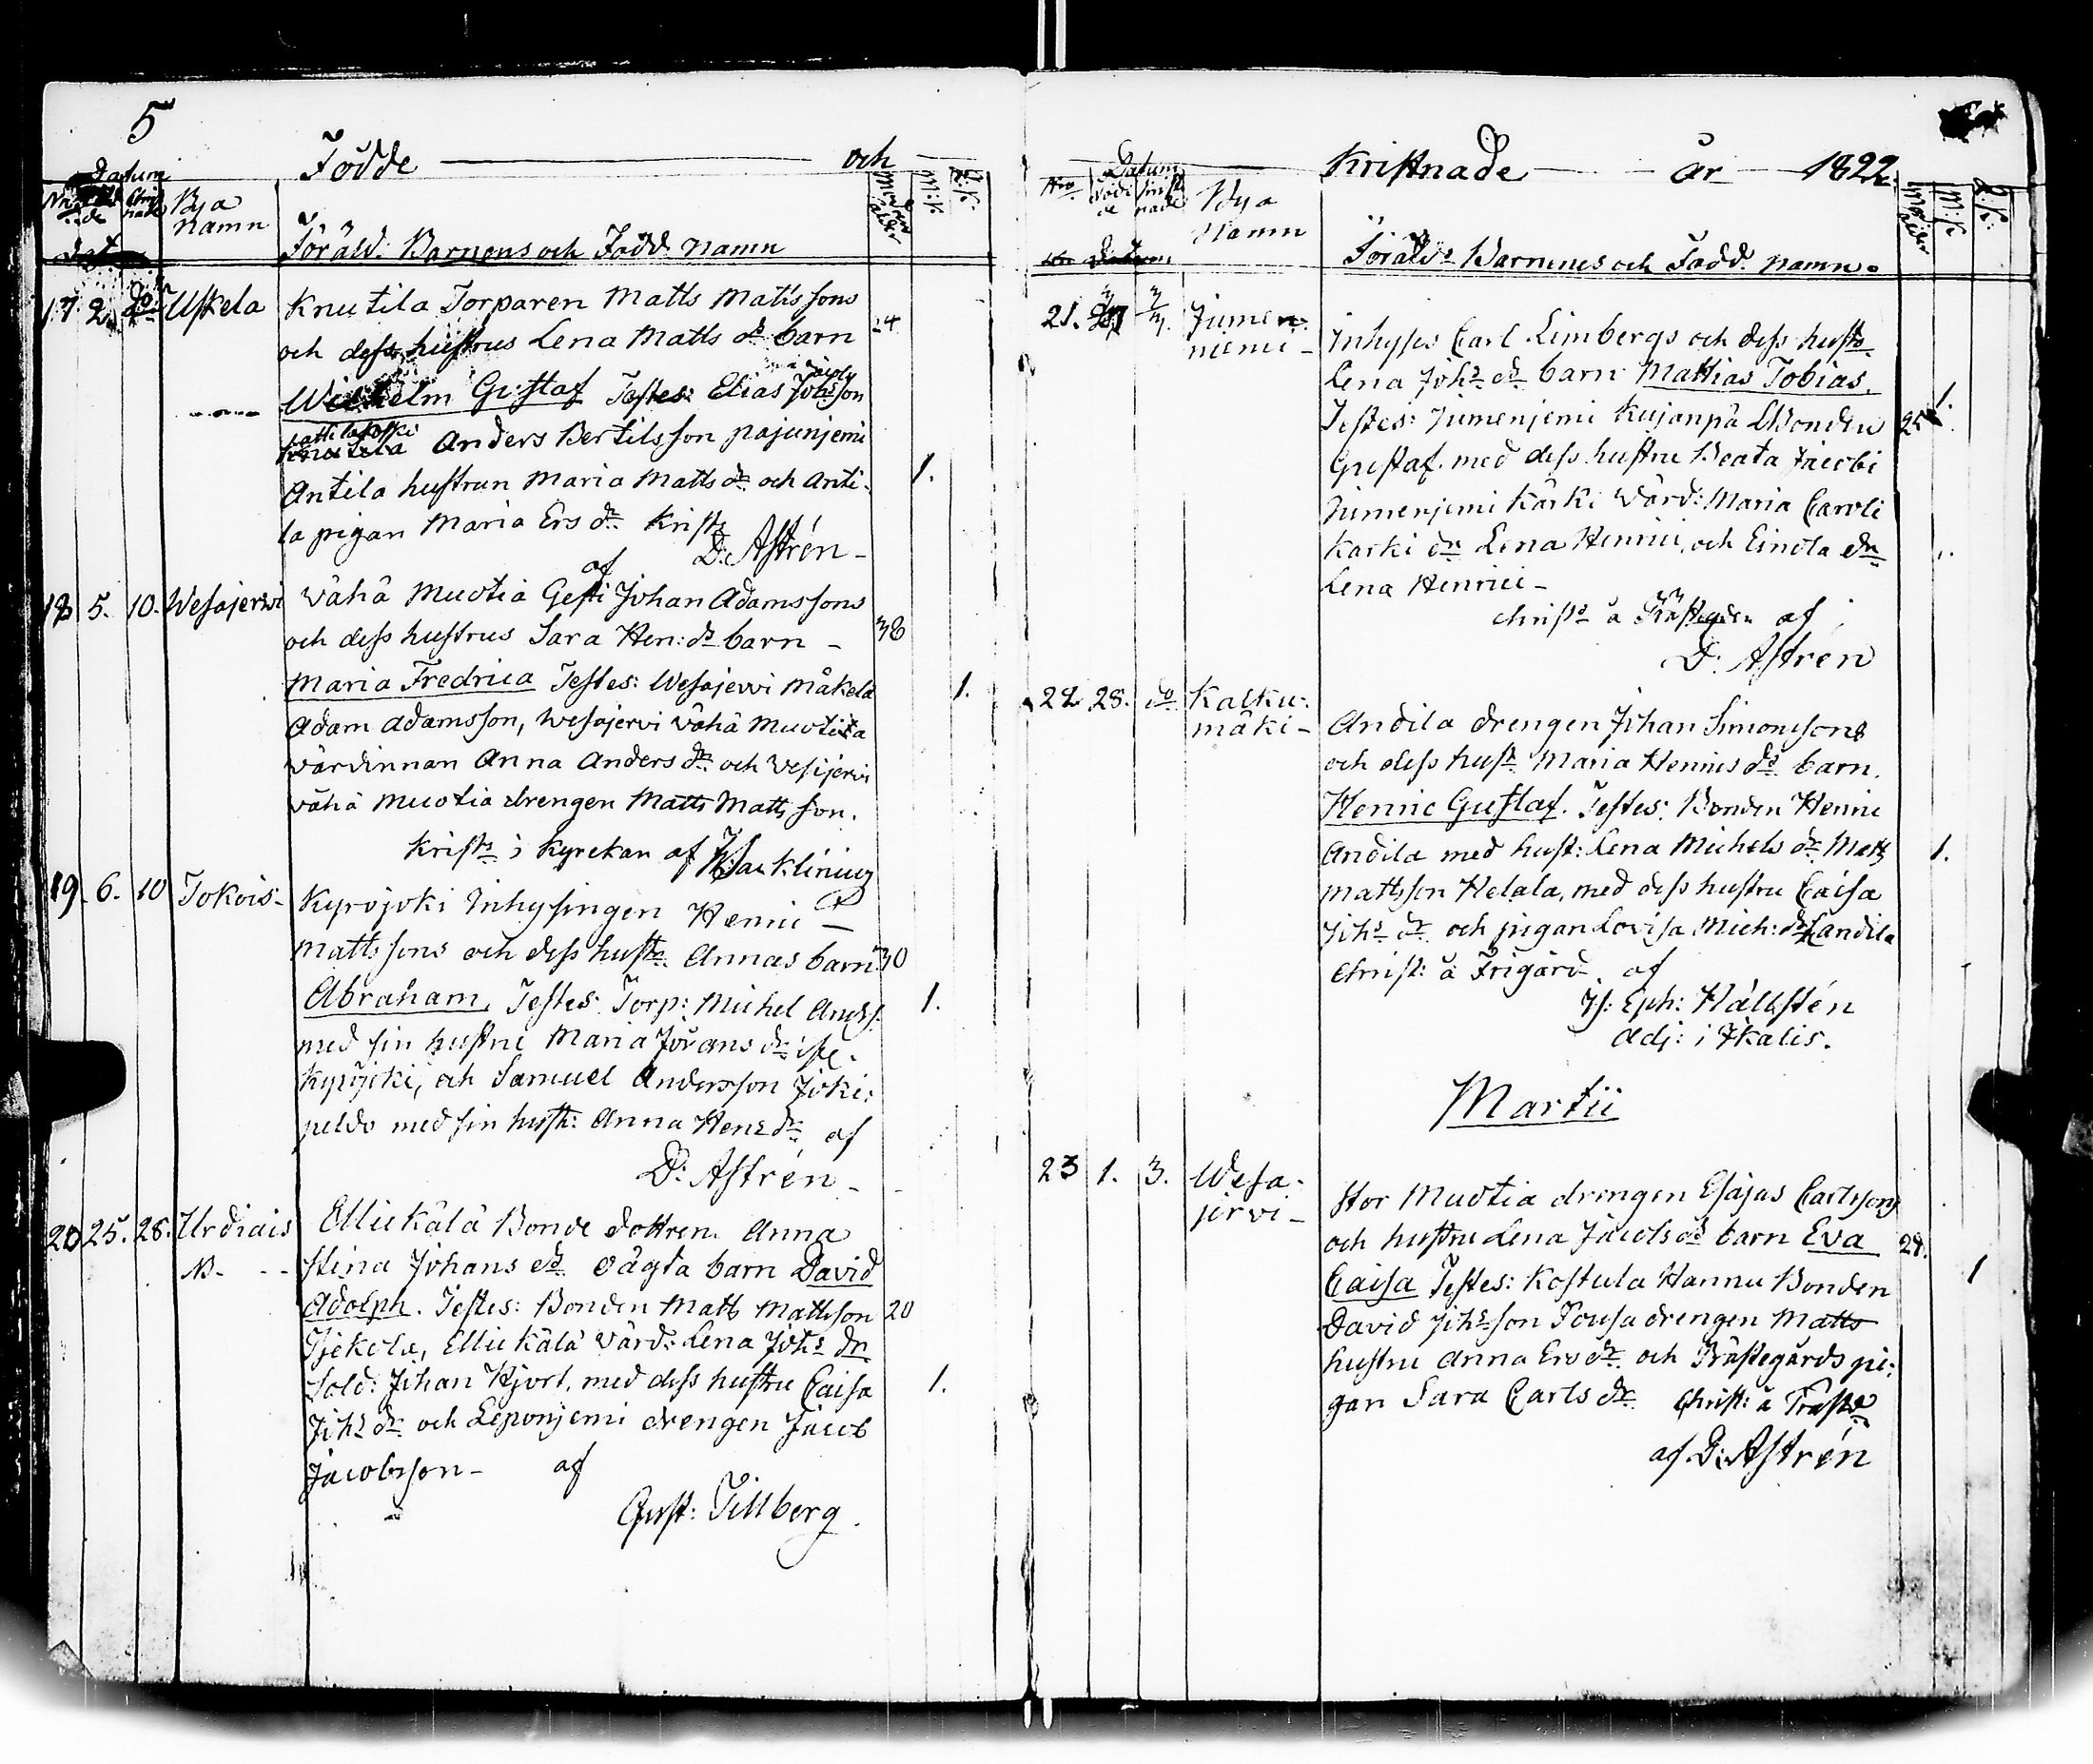 5
Födde och
Datum
Bya namn
Föräld: Barnens och Fadd. namn
17 2 do Uskela Knutila Torparen Matts Matts sons 24
och dess hustrus Lena Matts dr barn
Wilhelm Gustaf Testes: Elias Johsson
Anders Bertilsson pajunjemi
Antila hustrun Maria Matts dr och Anti- 1.
la pigan Maria Ers dr Krist
af D: Astrén
18 5. 10. Wesajerwi Vähä Muotia Gesti Johan Adamssons 38
och dess hustrus Sara Hen: ds barn
Maria Fredrica Testes: Wesajerwi Mäkelä 1.
Adam Adamsson, Wesajervi Vähä Muotila
värdinnan Anna Anders dr och Vesijervi
vähä Muotia drengen Matts Matts son.
Krist i Kyrckan af
19 6. 10 Jokois- Kyröjoki Inhysingen Henric
Mattssons och dess hustr. Annas barn 30
Abraham, Testes: Torp: Michel Ands. 1.
med sin hustru Maria Jörans dr
Kyröjoki, och Samuel Andersson Joki-
peldo med sin hustr: Anna Hens dr af
D: Astrén
20 25. 28. Urdiais Ellickälä Bonde dottren Anna
NB. Stina Johans ds oägta barn David
Adolph. Testes: Bonden Matts Mattsson 20
Ellickälä Värd: Lena Johs dr
Sold: Johan Hjort, med dess hustru Caisa 1.
Johs dr och Leponjemi drengen Jacob
Jacobsson af
Gust: Tillberg.
Kristnade år 1822.
Nro Datum Bya Namn
Föräld: Barnenes och Fadd. namn.
21. Jumen-
niemi Inhyses Carl Limbergs och dess hustr.
Lena Johs ds barn Mathias Tobias. 1.
Testes: Jumenjemi Kujanpä Bonden 25
Gustaf med dess hustru Beata Jacobi
Jumenjemi Kärki Värd: Maria Caroli
Karki dr Lena Henrici, och Einola dr
Lena Henrici
christ å Prästgården af
D: Astrén
22 28. do Kalku-
mäki Andila drengen Johan Simonssons
och dess hustr Maria Henrics ds barn.
Henric Gustaf. Testes: Bonden Henric
Andila med hust: Lena Michels dr Matts 1.
Mattsson Helala, med dess hustru Caisa
Johs dr och pigan Lovisa Mich: dr Landila
Christ: å Frigård af
Is: Eph: Hällstén
Adj: i Ikalis.
Martii
23 1. 3. Wesa-
jervi Stor Muotia drengen Esajas Carlssons
och hustru Lena Jacobs ds barn Eva 28.
Caisa Testes: Kostula Hannu Bonden 1
David Johsson Pousa drengen Matts
hustru Anna Ers dr och Prästegårds pi-
gan Sara Carls dr Christ: å Prästg
af D: Astrén